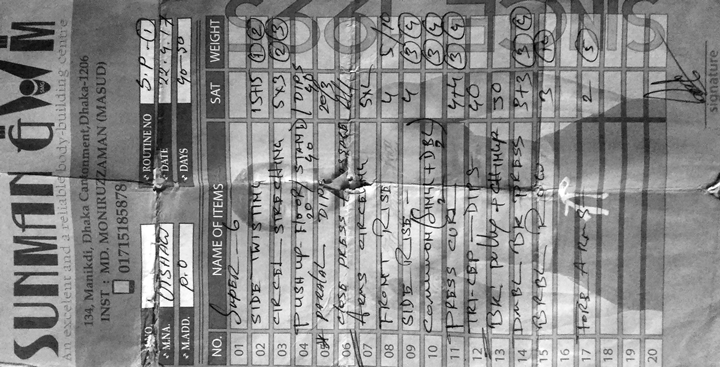 SINCE 1995
SUNMAN GYM
An excellent and a reliable body-building centre
134, Manikdi, Dhaka Cantonment, Dhaka-1206
INST : MD. MONIRUZZAMAN (MASUD)
01715185878
M.NO. ROUTINE NO S.P-1
M.NA. DATE 22.9.17
M.ADD. P.O DAYS 40-50
NO. NAME OF ITEMS SAT WEIGHT
01 SUPER - 6
02 SIDE TWISTING 15H5 1 2
03 CIRCEL STRECHING 5X3 2 3
04 PUSH UP FLOOR/STAND/DIPS
05 DIPS
06 CLOSE PRESS
07 ARMS CIRCEL 5X
08 FRONT RISE 4 5/10
09 SIDE RISE - 4 3 4
10 COMMON 3 4
11 PRESS CUR 4+4 3 4
12 TRI-CEP - DIPS 40
13 BK pully + CHINUP 30
14 DMBL - BK PRESS 3+3 3 4
15 BRBL - ROW 3 10
16
17 FORE ARMS 2 5
18
19
20
signature